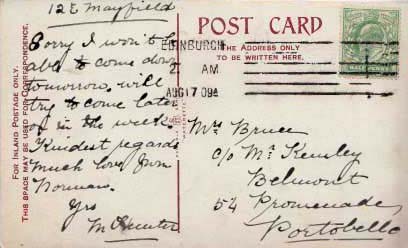 12 E Mayfield
Sorry I won't be
able to come down
tomorrow, will
try to come later
on in the week
Kindest regards
much love from
Norman.
Yrs
M Hunter
FOR INLAND POSTAGE ONLY.
THIS SPACE MAY BE USED FOR CORRESPONDENCE.
POST CARD
THE ADDRESS ONLY
TO BE WRITTEN HERE.
EDINBURGH
2. AM
AUG 17 09
Mrs Bruce
c/o Mr Kensley
Belmont
54 Promenade
Portobello